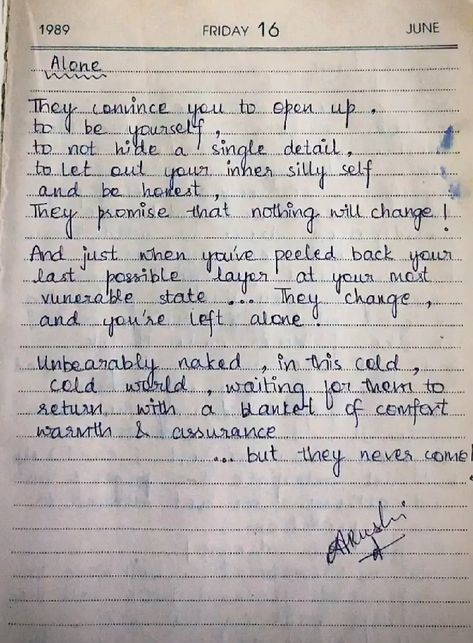 1989 FRIDAY 16 JUNE
Alone
They convince you to open up,
to be yourself,
to not hide a single detail,
to let out your inner silly self
and be honest,
They promise that nothing will change!
And just when you've peeled back your
last possible layer at your most
vunerable state ... They change,
and you're left alone!
Unbearably naked, in this cold,
cold world, waiting for them to
return with a blanket of comfort
warmth & assurance
... but they never come!
Arushi